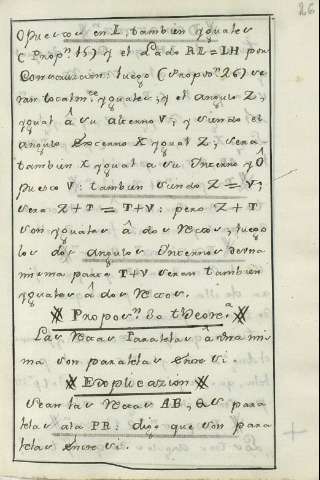 26
Opuestos en L, tambien yguales
(Propn. 15) y el Lado RL = LH por
Construccion: luego (Propon. 26) se
ran totalmte. yguales, y el angulo Z,
ygual â su alterno V, y siendo el
angulo Externo X ygual Z, sera
tambien X ygual a su Interno y O
puesto V: tambien siendo Z = V,
sera Z + T = T + V: pero Z + T
son yguales â dos Rectos, luego
los dos angulos Internos de una
misma parte T + V seran tambien
yguales â dos Rectos.
Propon. 30 theorea.
Las Rectas Paralelas â una mis
ma son paralelas entre si.
Explicazion
Sean las Rectas AB, para
lelas ala PR: digo que son para
lelas entre si.